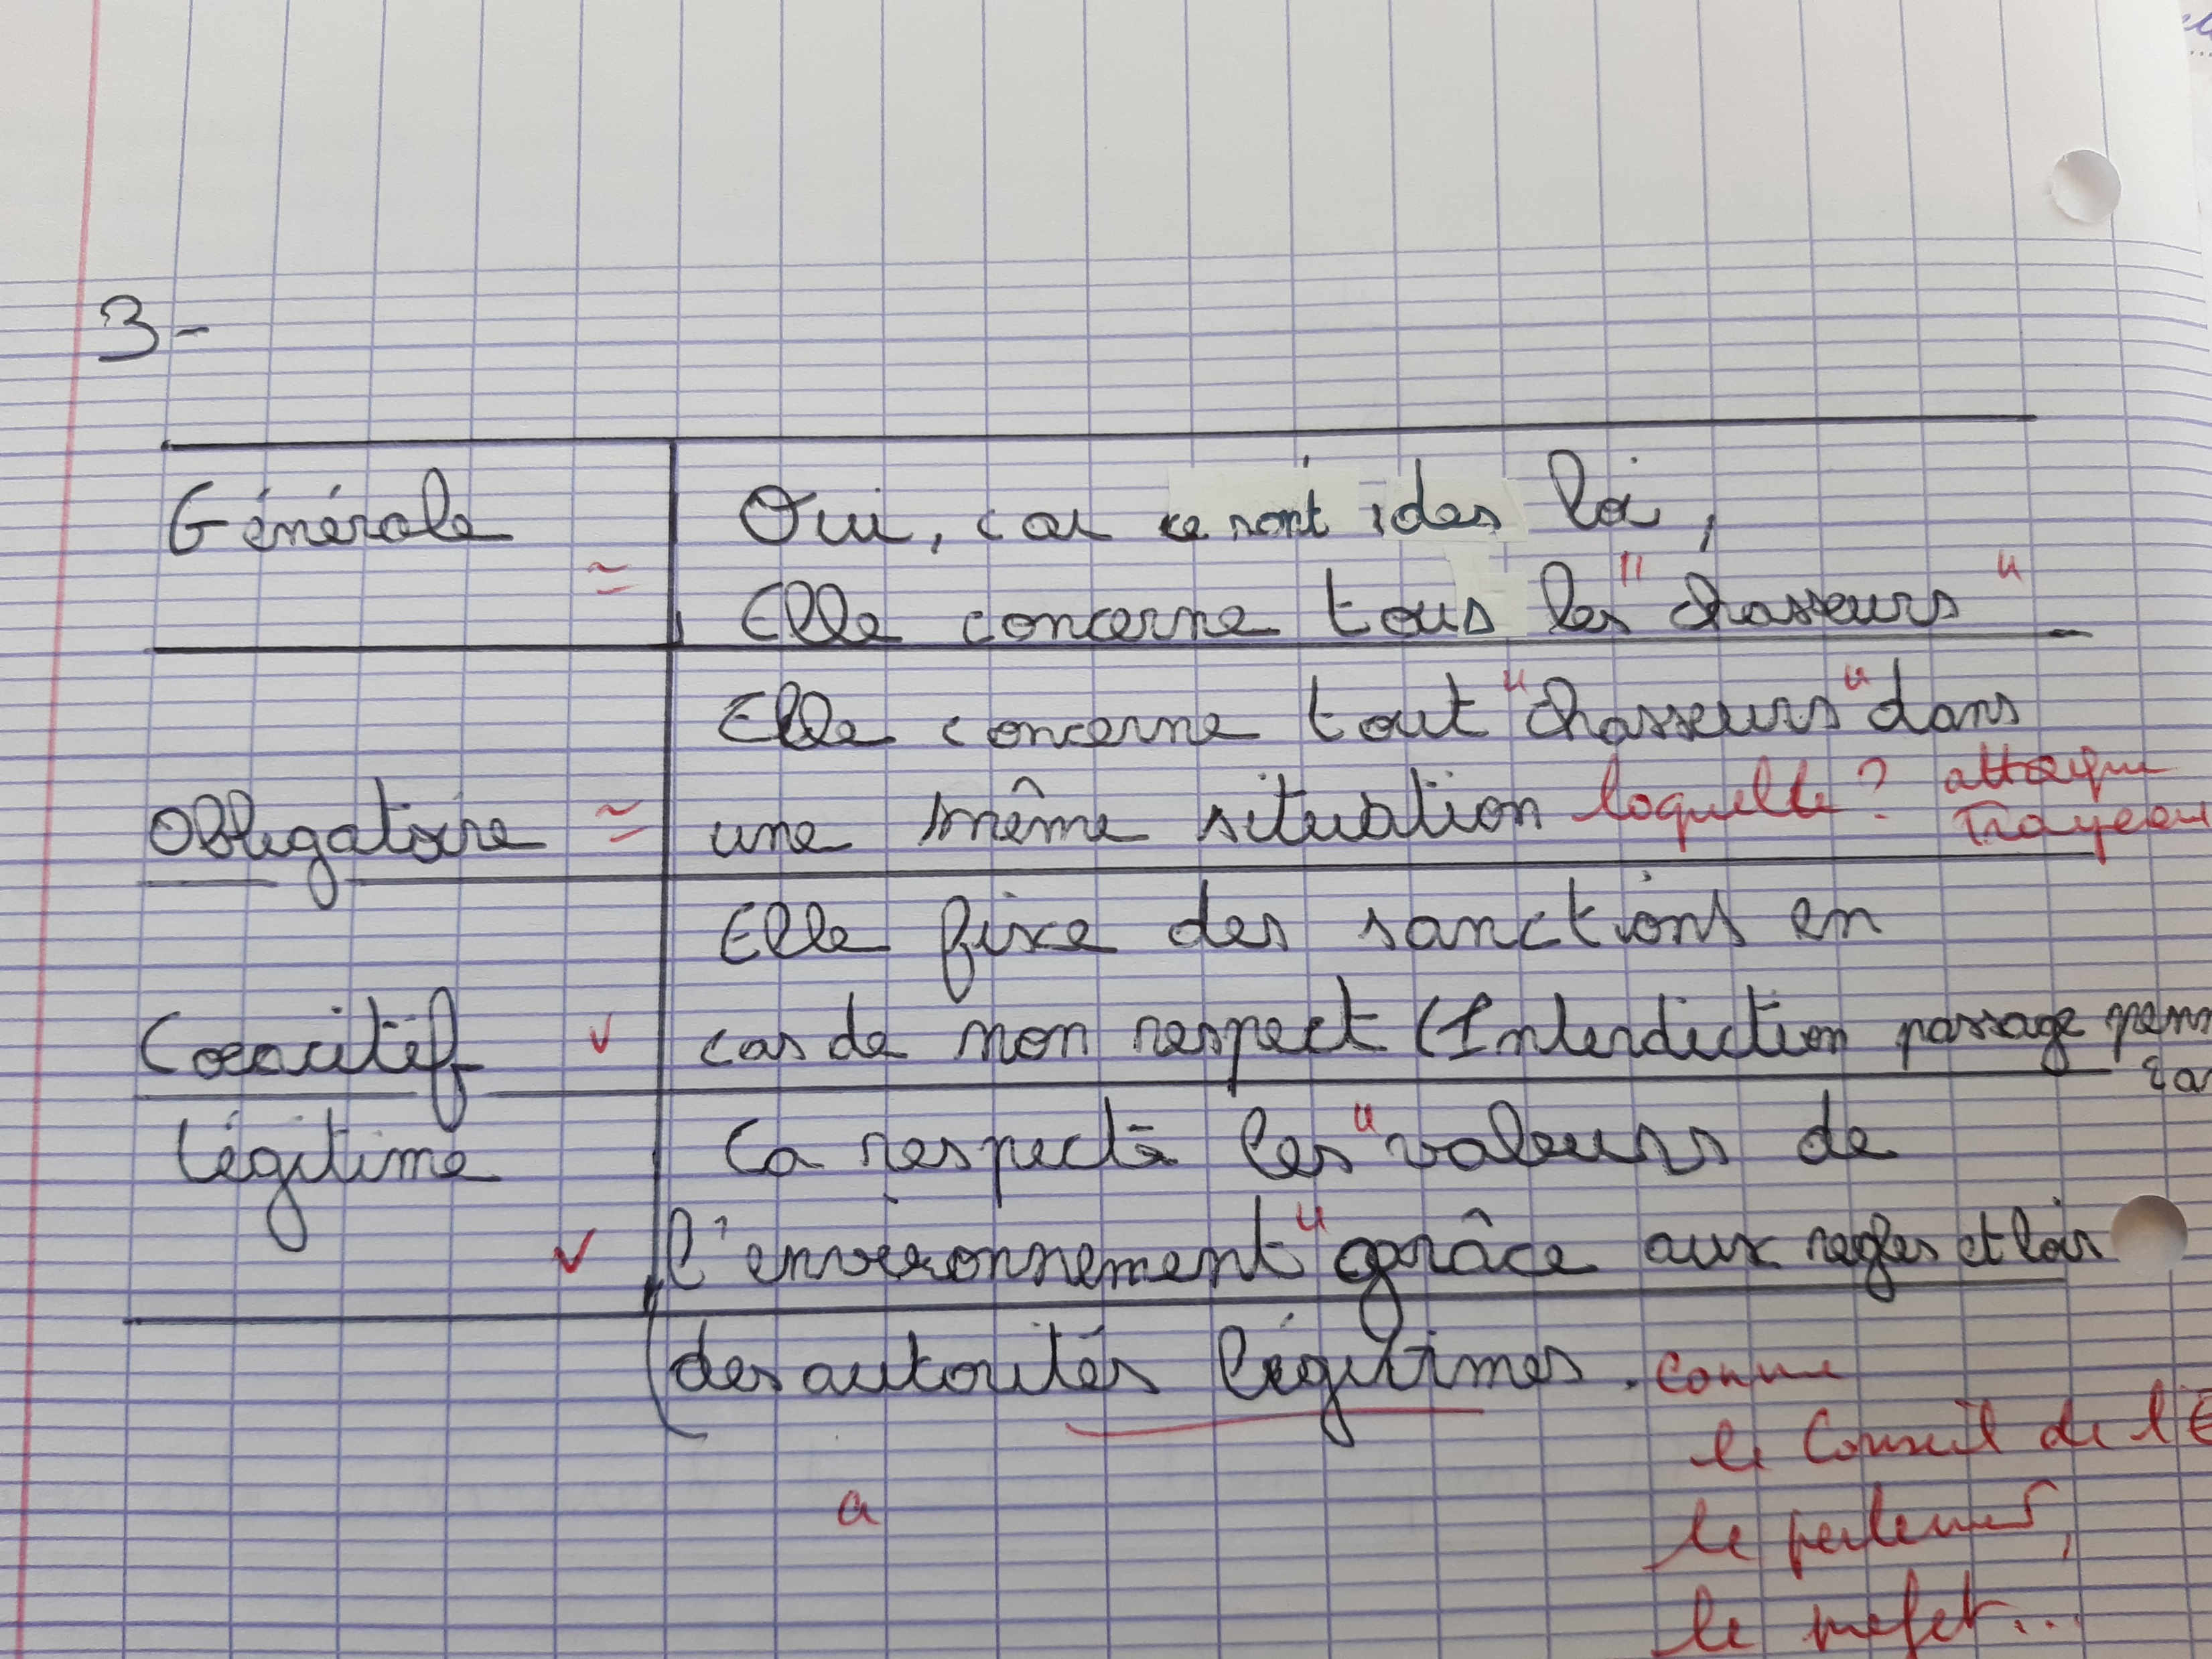 3-
Générale ≃ Oui, car ce sont des loi,
Elle concerne tous les "chasseurs"
Elle concerne tout "chasseurs" dans
Obligatoire ≃ une même situation laquelle ? attaque
Troupeau
Elle fixe des sanctions en
Coercitif ✓ cas de non respect (Interdiction passage
Légitime Ca respecte les "valeurs de
✓ l'environnement" grâce aux regles et lois
des autorités légitimes. comme
le Conseil de l'E
a
le parlement,
le prefet...